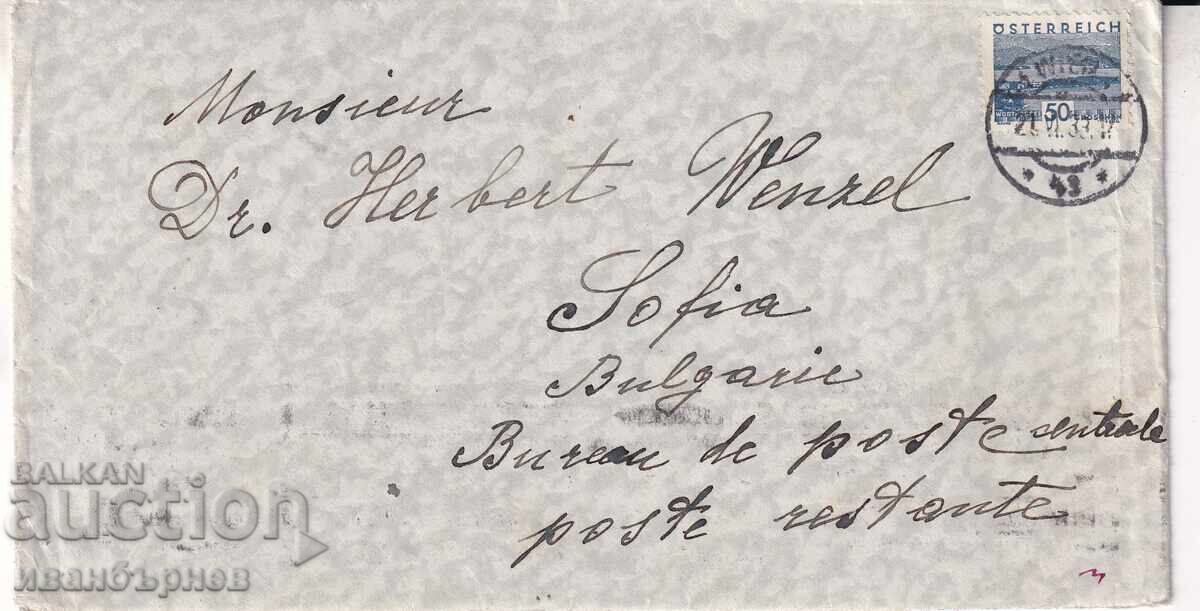 ÖSTERREICH
WIEN
50
21.VI.33
* 49 *
Monsieur
Dr. Herbert Wenzel
Sofia
Bulgarie
Bureau de poste centrale
poste restante
BALKAN
auction
иванбърнев